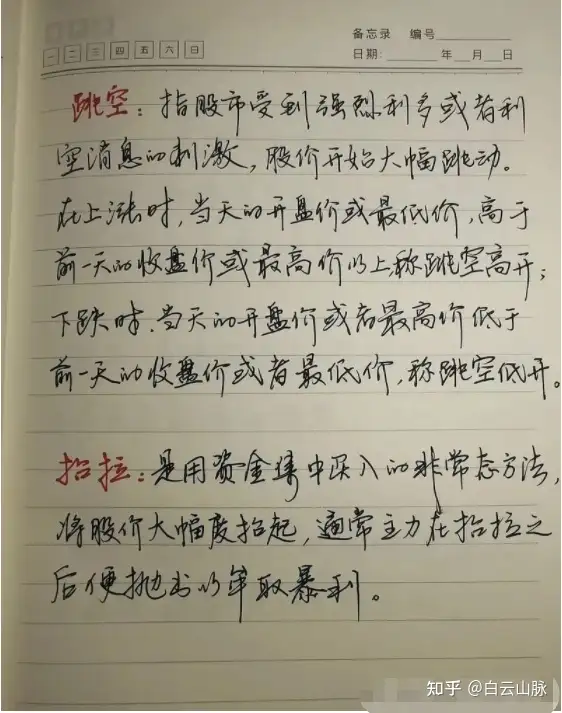 备忘录 编号
一 二 三 四 五 六 日
日期: 年 月 日
跳空：指股市受到强烈利多或者利
空消息的刺激，股价开始大幅跳动。
在上涨时，当天的开盘价或最低价，高于
前一天的收盘价或最高价以上称跳空高开；
下跌时.当天的开盘价或者最高价低于
前一天的收盘价或者最低价，称跳空低开。
抬拉：是用资金集中买入的非常态方法，
将股价大幅度抬起，通常主力在抬拉之
后便抛出以牟取暴利。
知乎 @白云山脉